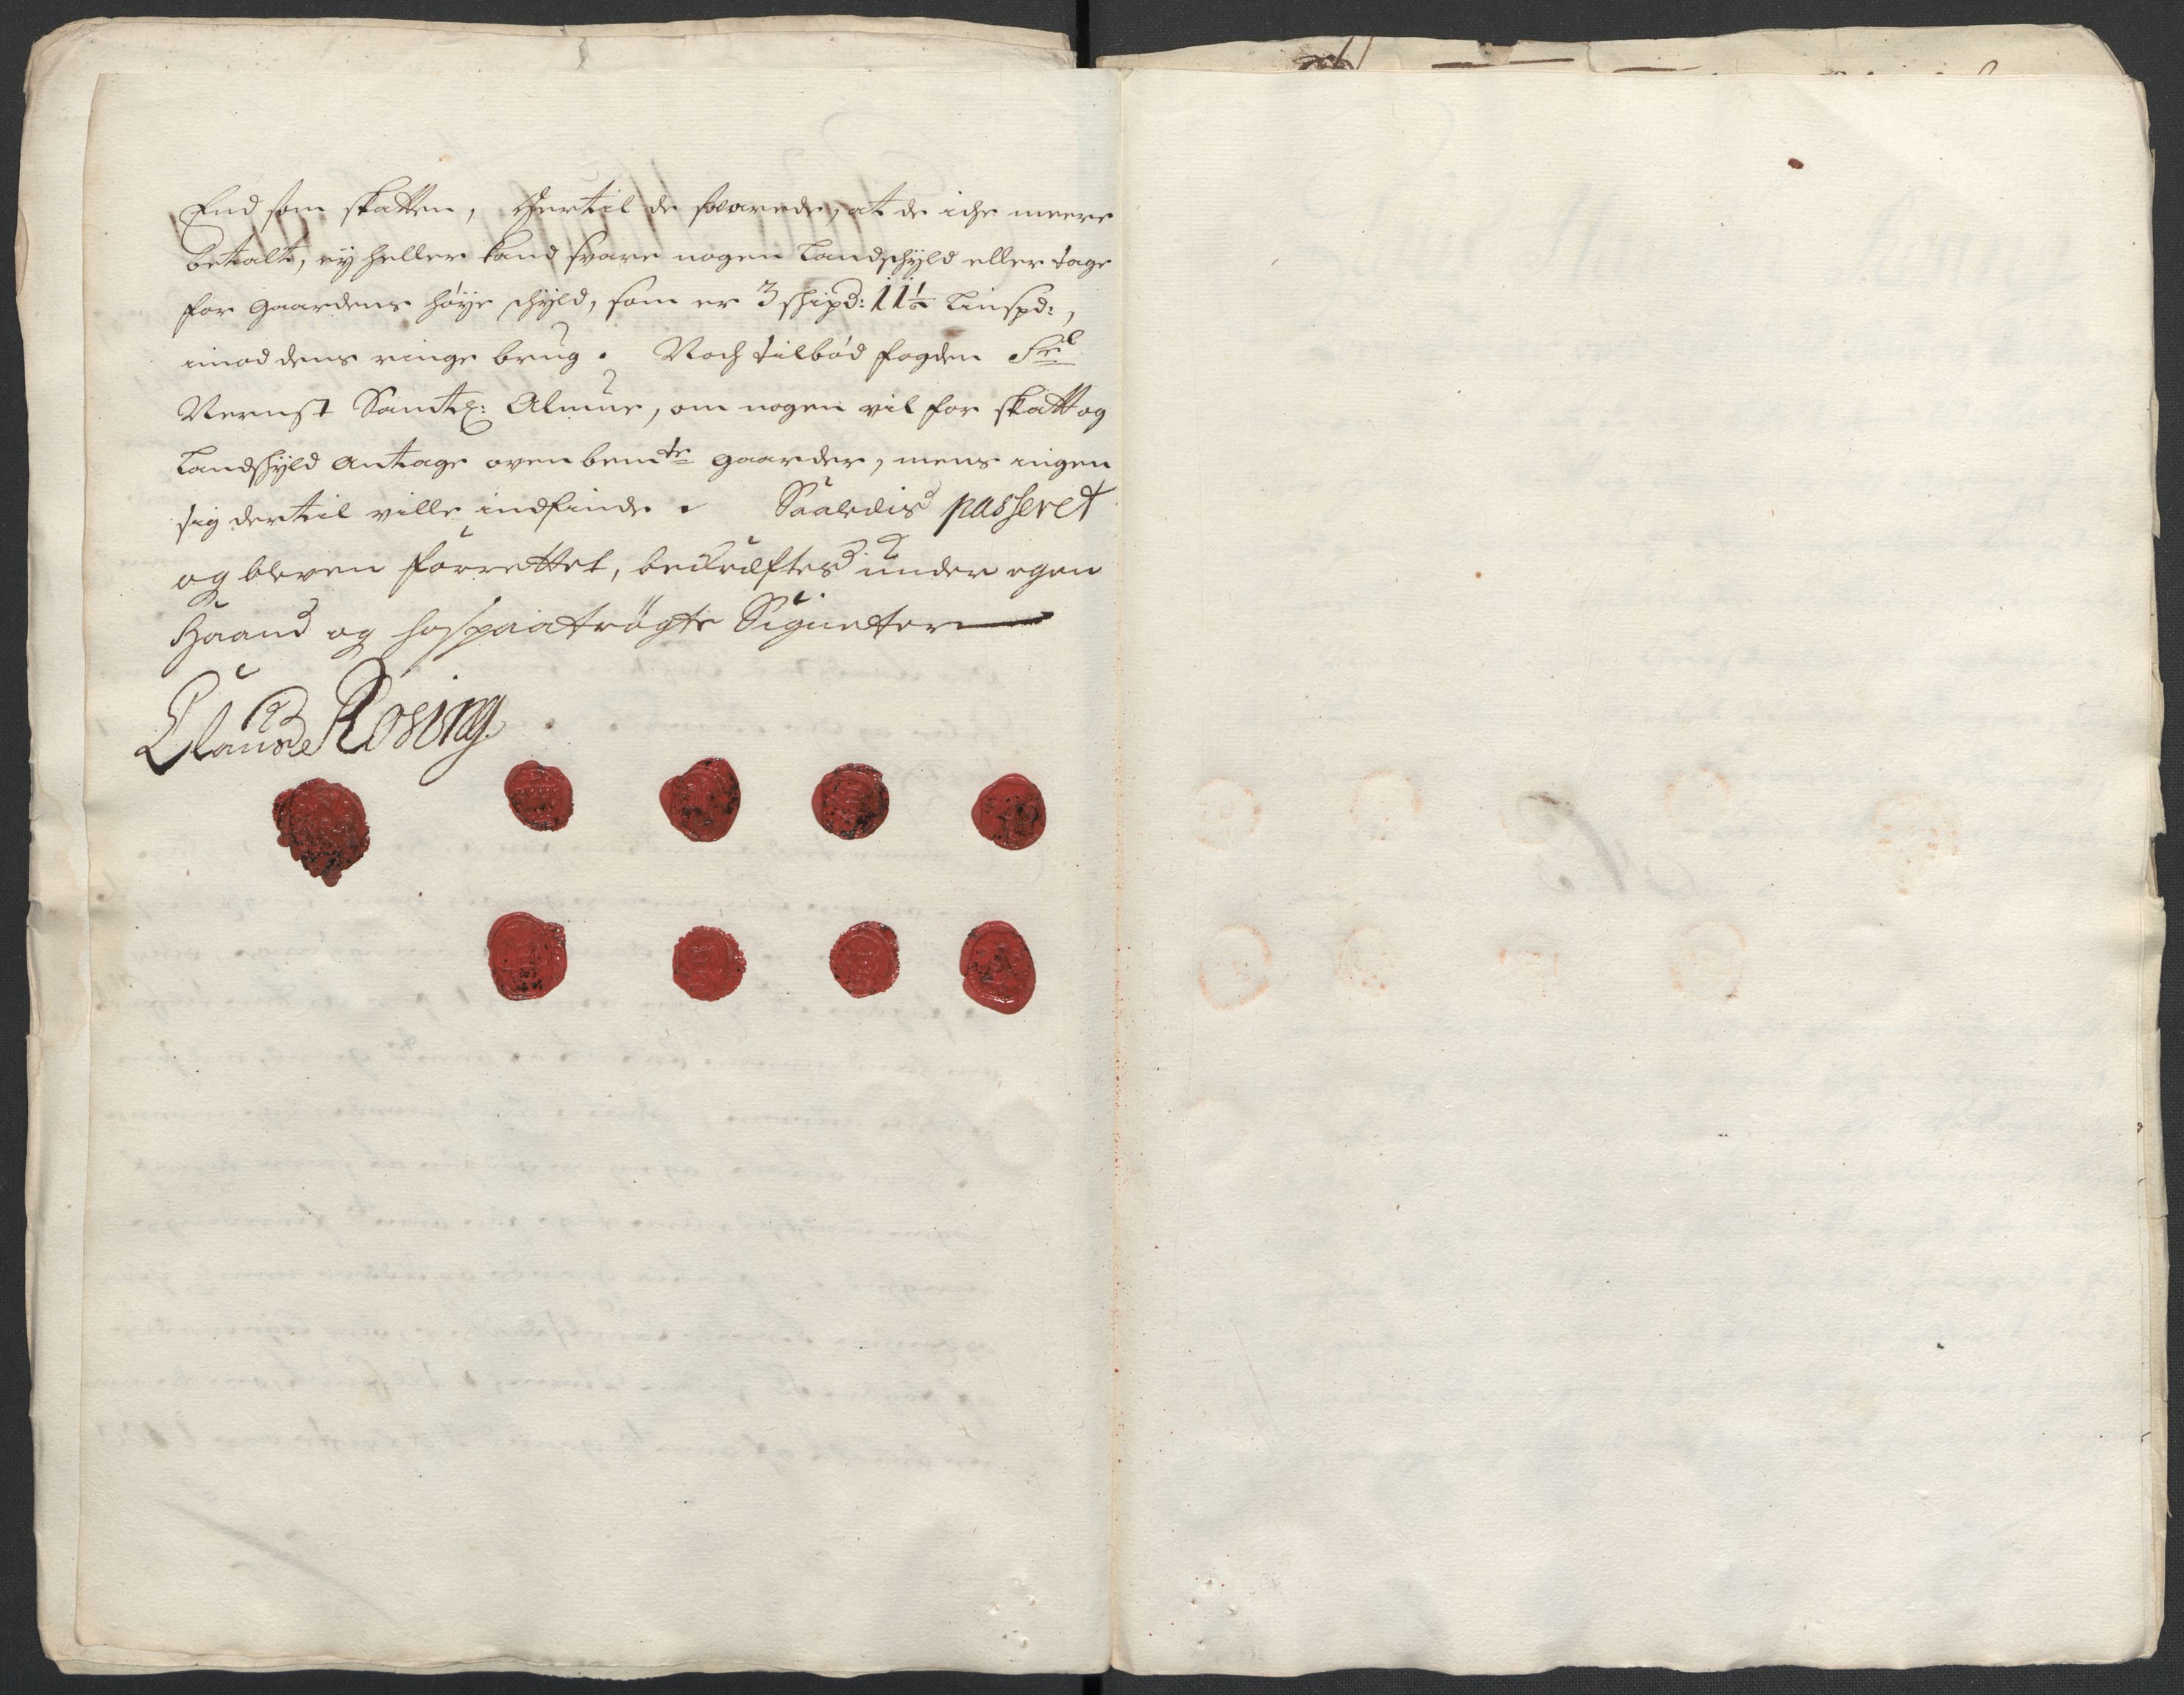 End som skatten, Hertil de svarede, at de iche meere
betalt, ey heller kand svare nogen Landschyld eller tage
for gaardens høye schyld, som er 3 shipd: 11½ Linspd:,
imod dens ringe brug. Noch tilbød fogden Sr
Samtl: Almue, om nogen vil for skatt og
Landschyld antage ovenbemte gaarder, mens ingen
sig dertil ville indfinde. Saaledis passeret
og bleven forrettet, becræftes under egen
Haand og hospaatrögte Signeter
Claus Rosing